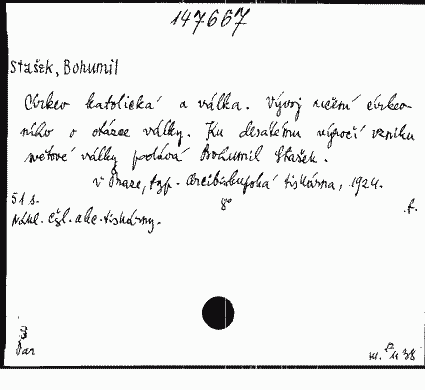 147667
Stašek, Bohumil
Církev katolická a válka. Vývoj učení církev-
ního o otázce války. Ku desátému výročí vzniku
světové války podává Bohumil Stašek.
v Praze, typ. Arcibiskupská tiskárna, 1924.
51 s. 8° f.
Nákl. Cyl. akc. tiskárny.
Dar